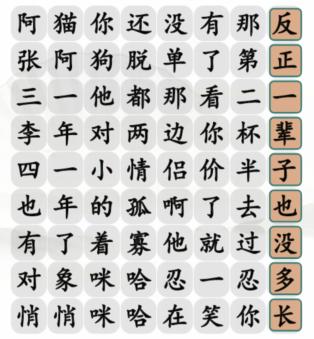 阿猫你还没有那反
张阿狗脱单了第正
三一他都那看二一
李年对两边你杯辈
四一小情侣价半子
也年的孤啊了去也
有了着寡他就过没
对象咪哈忍一忍多
悄悄咪哈在笑你长